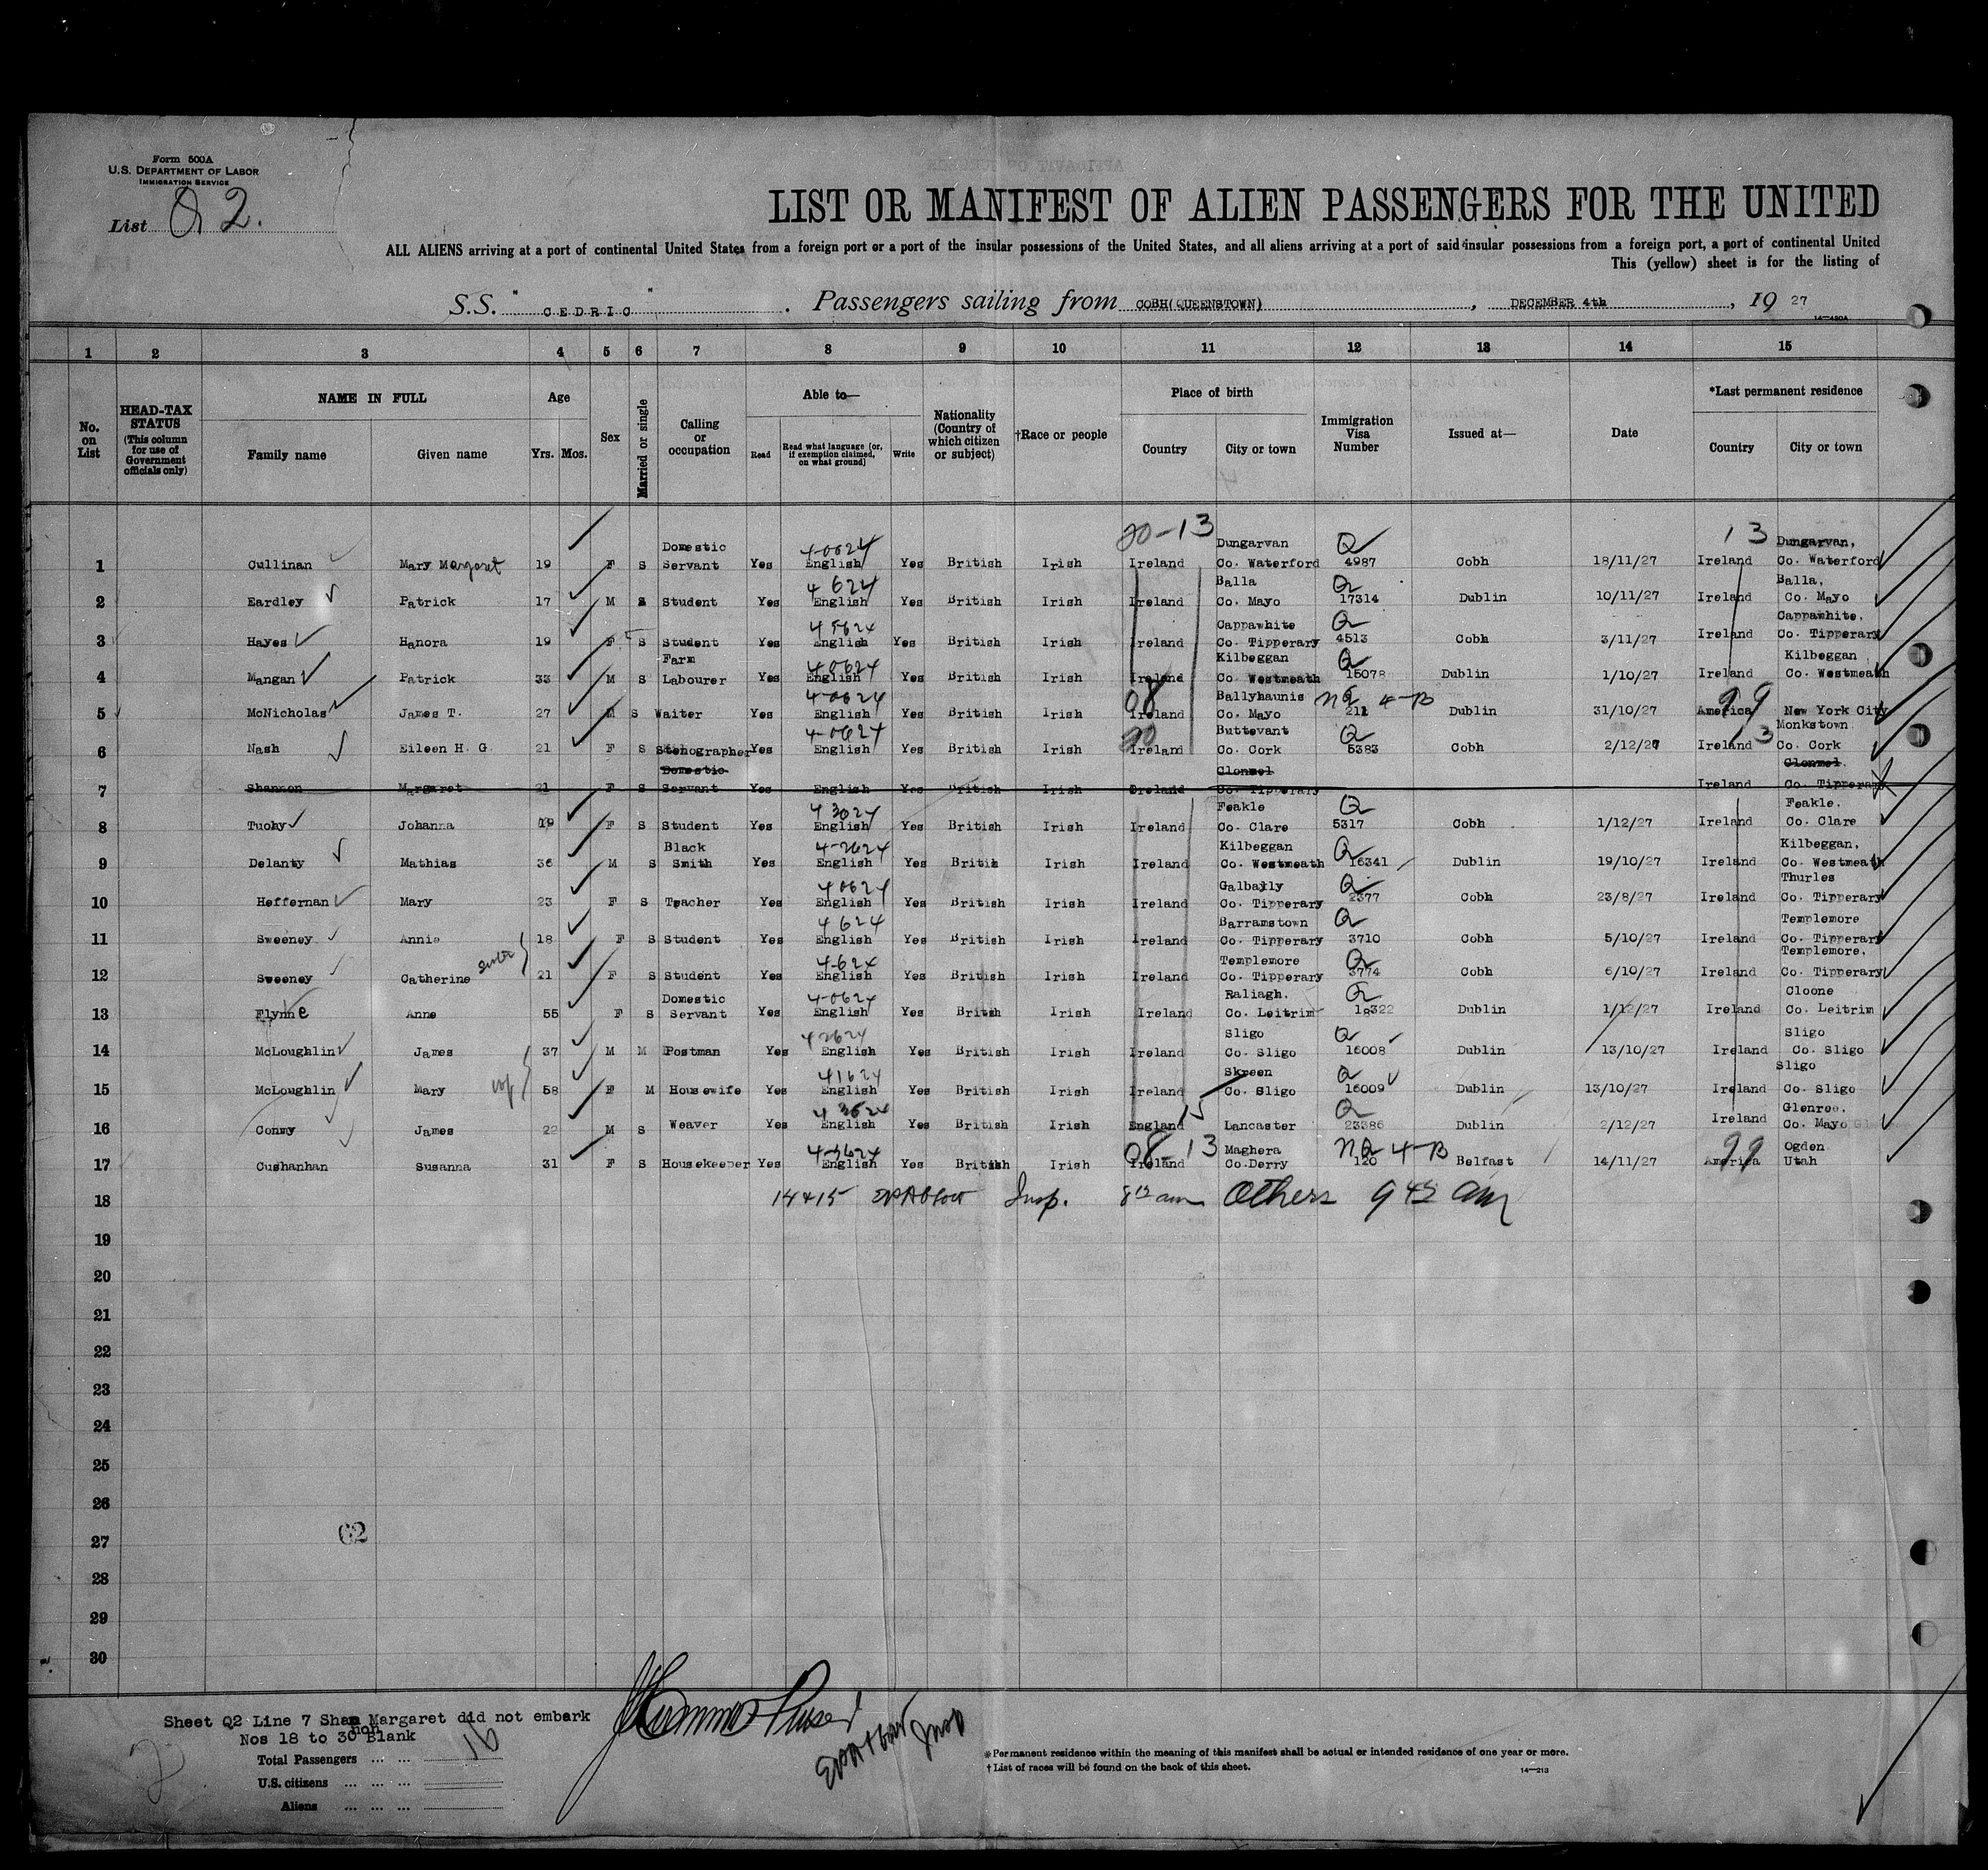 Form 500A
U.S. DEPARTMENT OF LABOR
IMMIGRATION SERVICE
List Q 2.
LIST OR MANIFEST OF ALIEN PASSENGERS FOR THE UNITED
ALL ALIENS arriving at a port of continental United States from a foreign port or a port of the insular possessions of the United States, and all aliens arriving at a port of said insular possessions from a foreign port, a port of continental United
This (yellow) sheet is for the listing of
S.S. "CEDRIC". Passengers sailing from COBH(QUEENSTOWN), DECEMBER 4th, 19 27
14—430A
1 2 3 4 5 6 7 8 9 10 11 12 13 14 15
No. on List
HEAD-TAX STATUS (This column for use of Government officials only)
NAME IN FULL
Family name Given name
Age
Yrs. Mos.
Sex
Married or single
Calling or occupation
Able to—
Read
Read what language [or, if exemption claimed, on what ground]
Write
Nationality (Country of which citizen or subject)
†Race or people
Place of birth
Country City or town
Immigration Visa Number
Issued at—
Date
*Last permanent residence
Country City or town
20-13 13
1 Cullinan Mary Margaret 19 F S Domestic Servant Yes 4-0624 English Yes British Irish Ireland Dungarvan Co. Waterford Q 4987 Cobh 18/11/27 Ireland Dungarvan, Co. Waterford
2 Eardley Patrick 17 M S Student Yes 4 624 English Yes British Irish Ireland Balla Co. Mayo Q 17314 Dublin 10/11/27 Ireland Balla, Co. Mayo
3 Hayes Hanora 19 F S Student Yes 4 5624 English Yes British Irish Ireland Cappawhite Co. Tipperary Q 4513 Cobh 3/11/27 Ireland Cappawhite, Co. Tipperary
4 Mangan Patrick 33 M S Farm Labourer Yes 4-0624 English Yes British Irish Ireland Kilbeggan Co Westmeath Q 15078 Dublin 1/10/27 Ireland Kilbeggan Co. Westmeath
5 McNicholas James T. 27 M S Waiter Yes 4-0624 English Yes British Irish 08 Ireland Ballyhaunis Co. Mayo NQ 4-B 211 Dublin 31/10/27 America 99 New York City
6 Nash Eileen H. G. 21 F S Stenographer Yes 4-0624 English Yes British Irish 20 Ireland Buttevant Co. Cork Q 5383 Cobh 2/12/27 Ireland 13 Monkstown Co. Cork
7 Shannon Margaret 21 F S Domestic Servant Yes English Yes British Irish Ireland Clonmel Co. Tipperary Ireland Clonmel. Co. Tipperary
8 Tuohy Johanna 19 F S Student Yes 4 3024 English Yes British Irish Ireland Feakle Co. Clare Q 5317 Cobh 1/12/27 Ireland Feakle. Co. Clare
9 Delanty Mathias 36 M S Black Smith Yes 4-2624 English Yes Britih Irish Ireland Kilbeggan Co. Westmeath Q 16341 Dublin 19/10/27 Ireland Kilbeggan, Co. Westmeath
10 Heffernan Mary 23 F S Teacher Yes 4 0624 English Yes British Irish Ireland Galbally Co. Tipperary Q 2377 Cobh 23/8/27 Ireland Thurles Co. Tipperary
11 Sweeney Annie 18 F S Student Yes 4 624 English Yes British Irish Ireland Barramstown Co. Tipperary Q 3710 Cobh 5/10/27 Ireland Templemore Co. Tipperary
12 Sweeney Catherine sister 21 F S Student Yes 4-624 English Yes British Irish Ireland Templemore Co. Tipperary Q 3774 Cobh 6/10/27 Ireland Templemore, Co. Tipperary
13 Flynne Anne 55 F S Domestic Servant Yes 4-0624 English Yes British Irish Ireland Raliagh. Co. Leitrim Q 18322 Dublin 1/12/27 Ireland Cloone Co. Leitrim
14 McLoughlin James 37 M M Postman Yes 42624 English Yes British Irish Ireland Sligo Co. Sligo Q 16008 Dublin 13/10/27 Ireland Sligo Co. Sligo
15 McLoughlin Mary wf 58 F M Housewife Yes 41624 English Yes British Irish Ireland Skreen Co. Sligo Q 16009 Dublin 13/10/27 Ireland Sligo Co. Sligo
16 Conwy James 22 M S Weaver Yes 4 3624 English Yes British Irish 15 England Lancaster Q 23386 Dublin 2/12/27 Ireland Glenroe. Co. Mayo
17 Cushanhan Susanna 31 F S Housekeeper Yes 4-3624 English Yes British Irish 08-13 Ireland Maghera Co.Derry NQ 4-B 120 Belfast 14/11/27 America 99 Ogden Utah
18 14+15 Insp. 8 12 am Others 9 45 am
19
20
21
22
23
24
25
26
27
28
29
30
62
Sheet Q2 Line 7 Shannon Margaret did not embark
Nos 18 to 30 Blank
Total Passengers ... ... 16
U.S. citizens ... ... ...
Aliens ... ... ...
Purser
Insp
2
*Permanent residence within the meaning of this manifest shall be actual or intended residence of one year or more.
†List of races will be found on the back of this sheet.
14—213